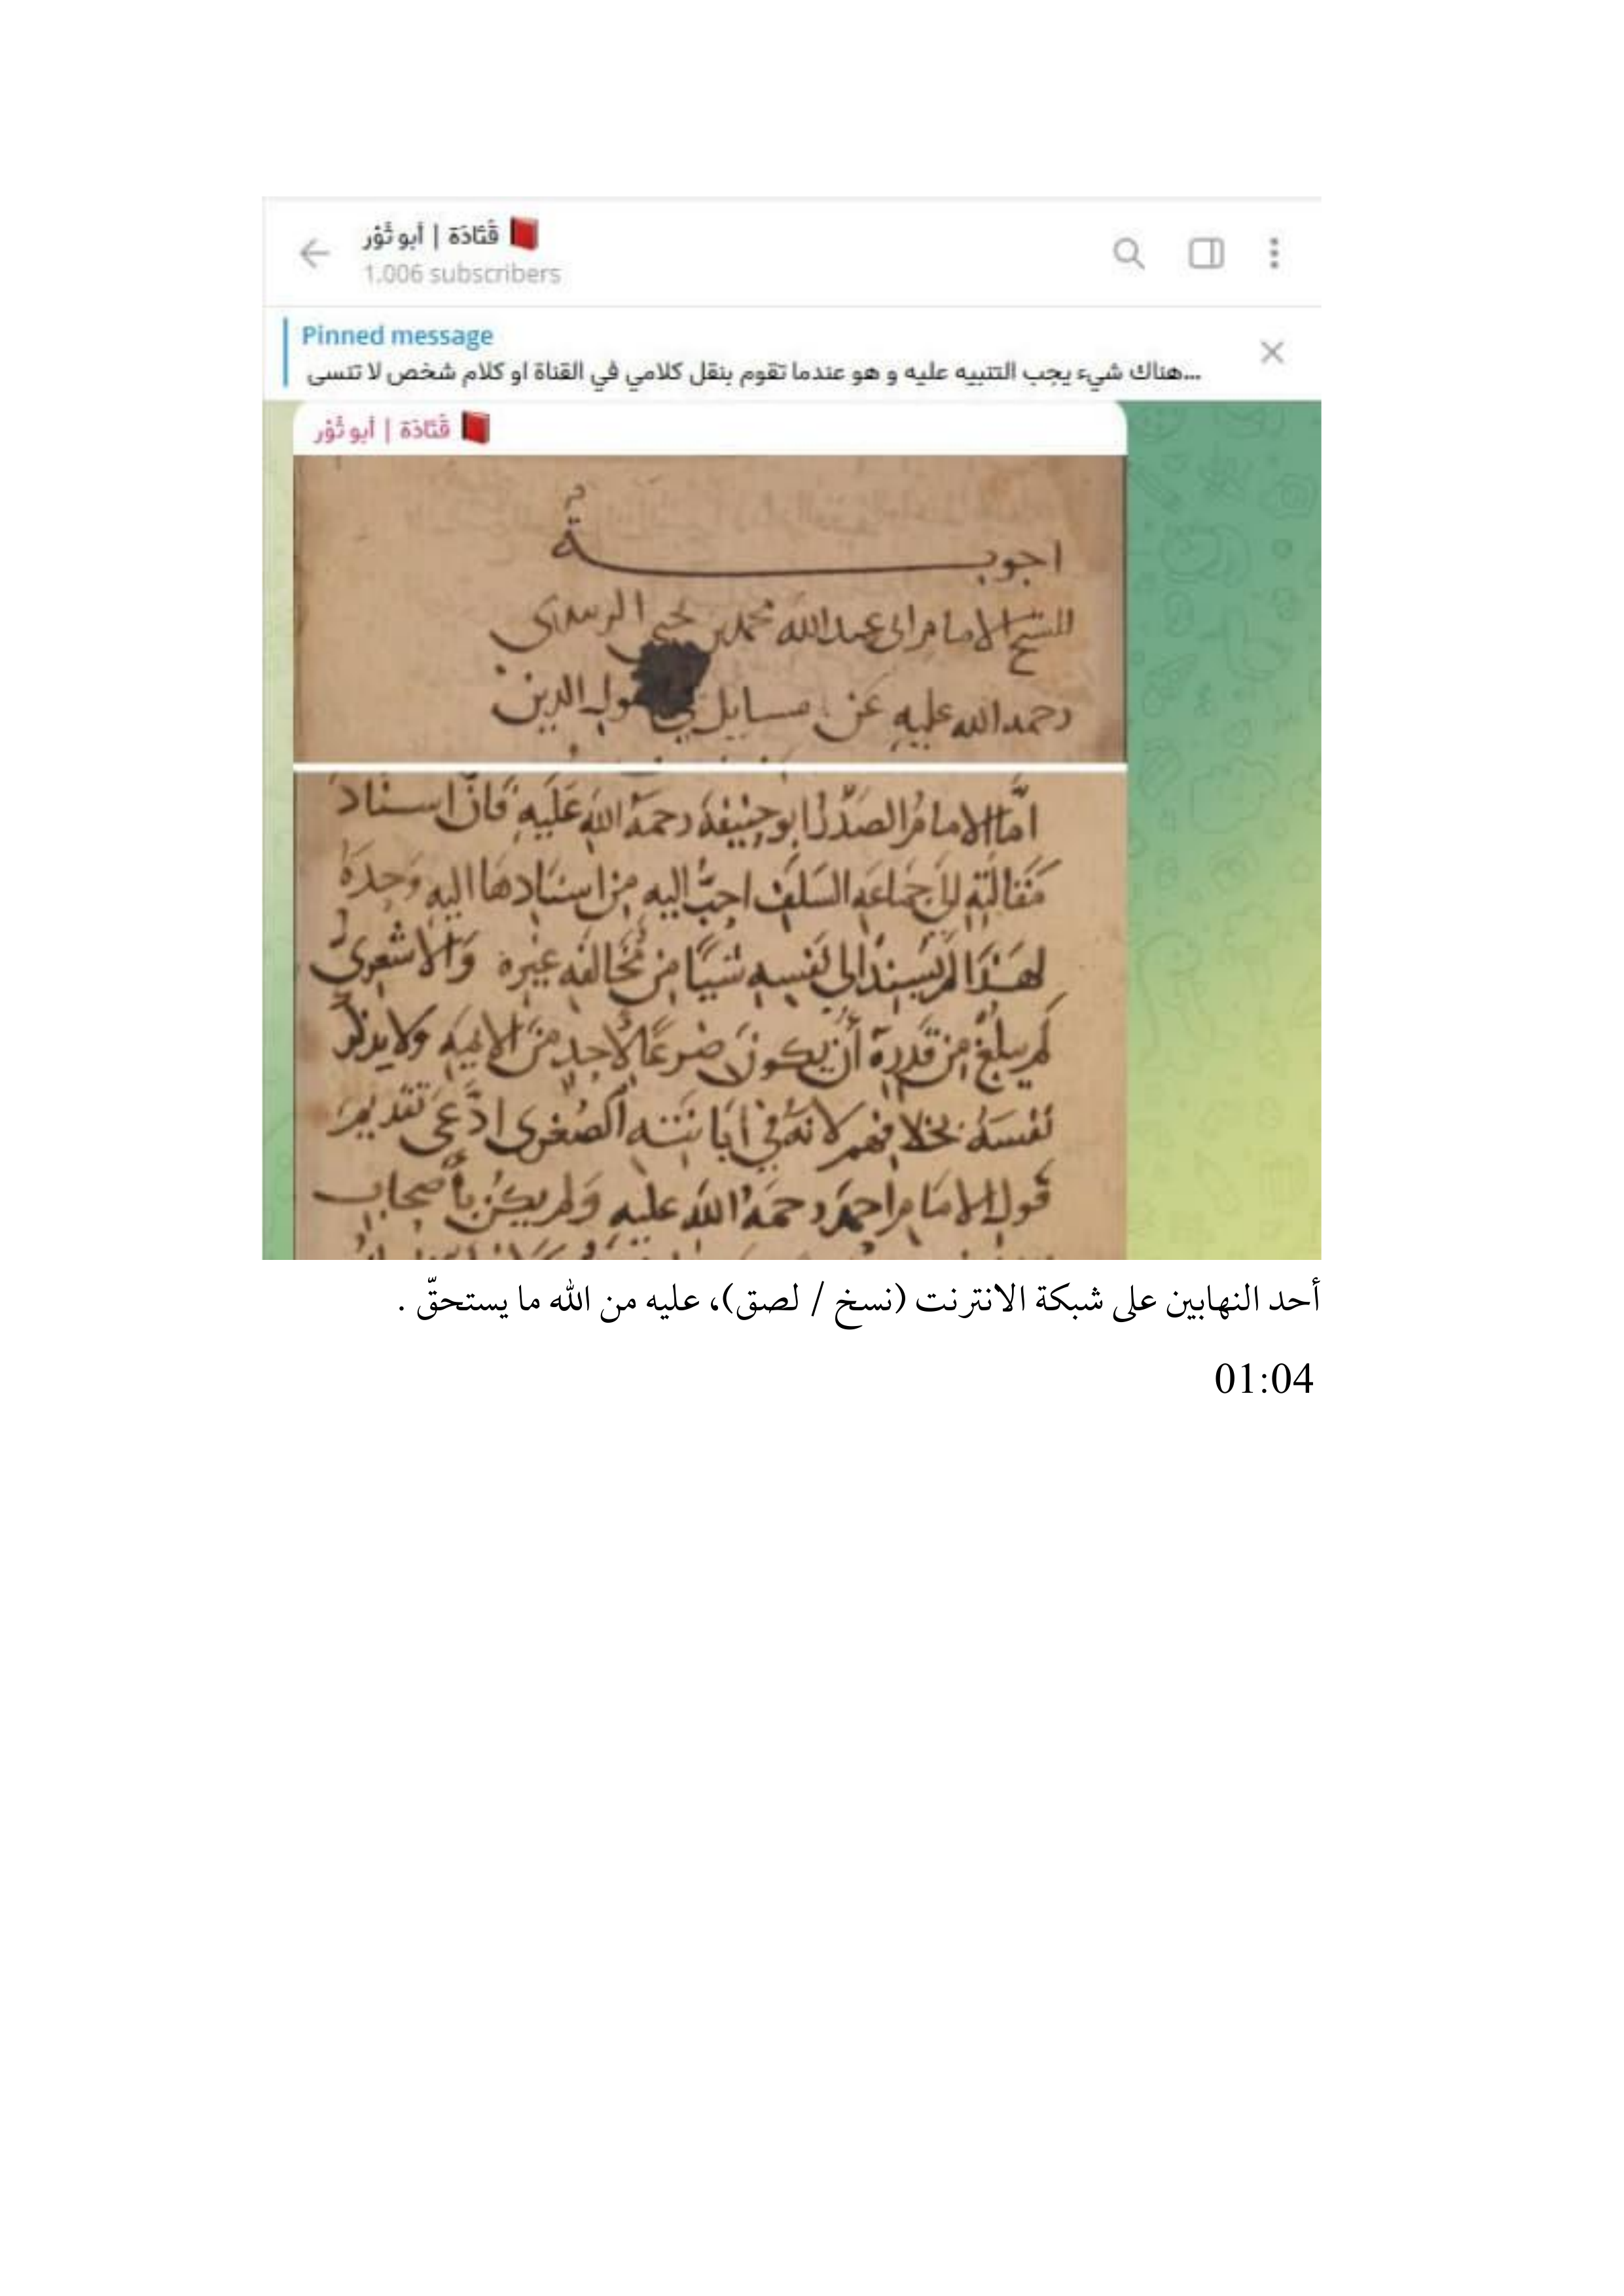 قَتَادَة | أبو ثَوْر
1,006 subscribers
Pinned message
هناك شيء يجب التنبيه عليه و هو عندما تقوم بنقل كلامي في القناة او كلام شخص لا تنسى...
قَتَادَة | أبو ثَوْر
اجوبة
للشيخ الامام ابى عبد الله محمد بن يحيى
رحمه الله عليه عن مسايل في الدين
امَّا الامامُ الصَّدْرُ ابو حنيفة رحمة الله عليه فانَّ اسناد
مَقالتِهِ الى جماعه السلف احبُّ اليه من اسنادها اليه وحده
لهذا لم يسند الى نفسه شيئا من مخالفه غيره والاشعرى
لم يبلغ من قدره أن يكون ضرعًا لأحد من الايمه ولا يذكر
نفسه بخلافهم لانه في ابانته الصغرى ادَّعى تقديم
قول الامام احمد رحمة الله عليه ولم يكن بأصحاب
أحد النهابين على شبكة الانترنت (نسخ / لصق)، عليه من الله ما يستحقّ .
01:04